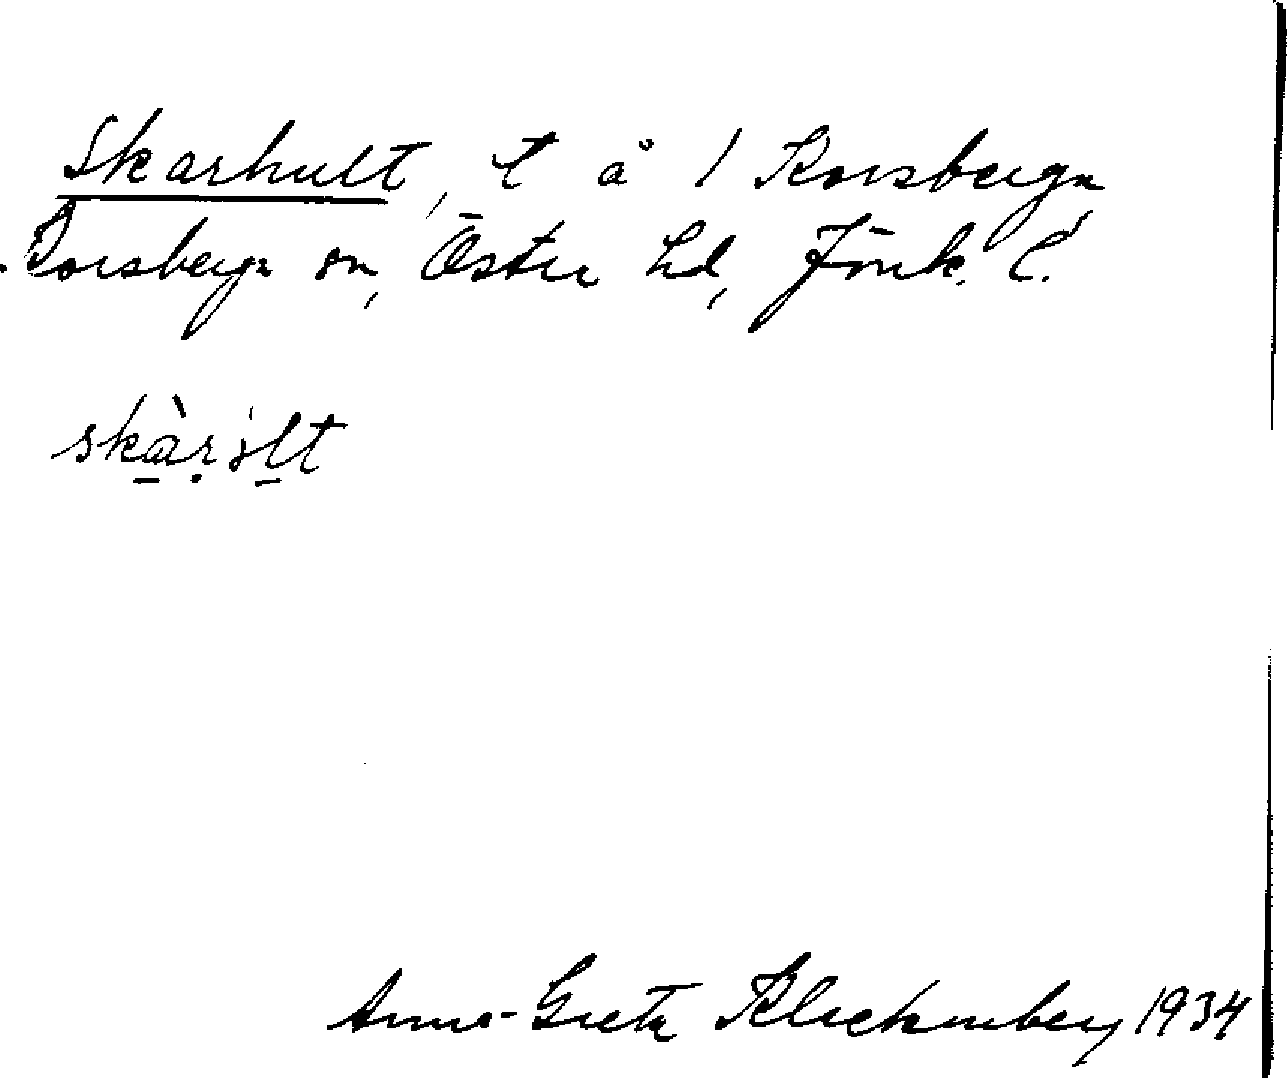 Skarhult, t å 1 Korsberga
Korsberga sn, Östra hd, Jönk. l.
skàr ålt
Anna-Greta Kleckenberg 1934